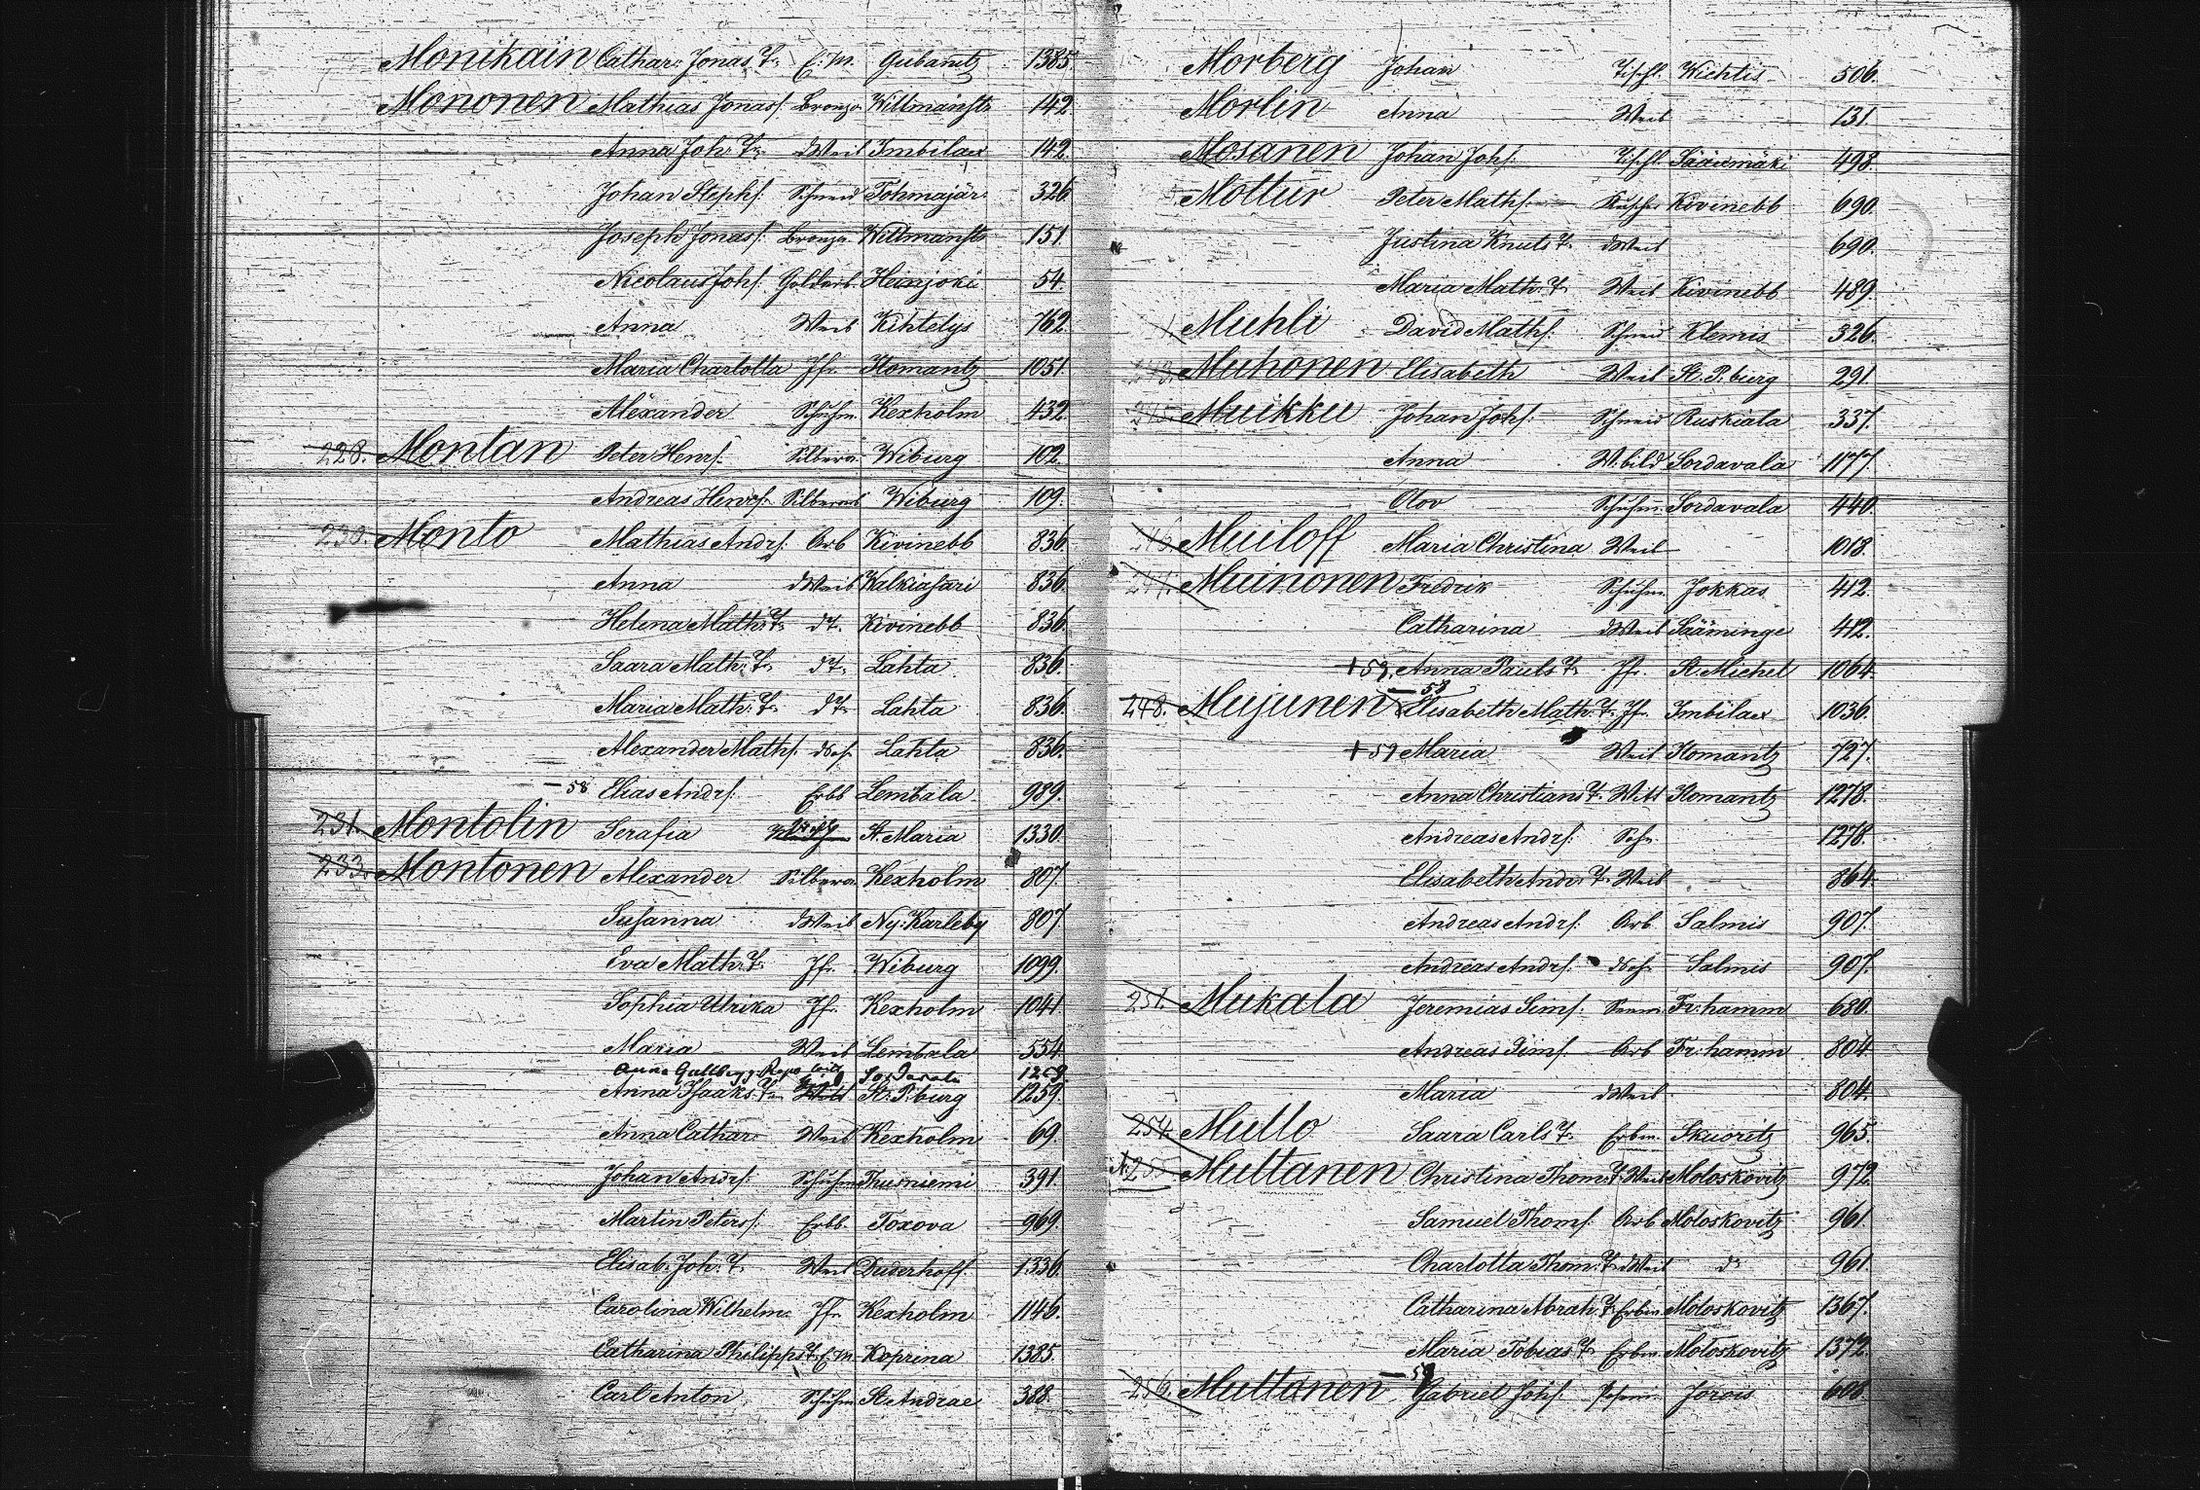 Monikain Cathar. Jonas T. E. M. Gubanitz 1385.
Mononen Mathias Jonass. Bronza. Willmanstr 142
Anna Joh. T. dWeib Imbilax 142.
Johan Stephs. Schneid Tohmajär. 326
Joseph Jonass. Bronza. Willmanstr 151.
Nicolaus Johs. Goldarb. Heinjoki 54.
Anna Weib Kihtelys 762.
Maria Charlotta Jfr. Ilomantz 1051.
Alexander Schuhm. Kexholm 432.
228. Montan Peter Henrs. Silbera. Wiburg 102.
Andreas Henrs. Silberarb Wiburg 109.
230. Monto Mathias Andrs. Arb Kivinebb 836.
Anna dWeib Walkiasari 836.
Helena Math. T. dT. Kivinebb 836.
Saara Math. T. dT. Lahta 836.
Maria Math. T. dT. Lahta 836.
Alexander Maths. dSoh. Lahta 836.
— 58 Elias Andrs. Erbb Lembala 989.
231. Montolin Serafia St. Maria 1330.
233. Montonen Alexander Silbera. Kexholm 807.
Susanna dWeib Ny. Karleby 807.
Eva Math. T. Jfr. Wiburg 1099.
Sophia Ulrika Jf. Kexholm 1041.
Maria Weib Lembala 554.
Anna Gullbegg. Sordavala
Anna Isaaks T. St. P.burg 1259.
Anna Cathar. Weib Kexholm 69.
Johan Andrs. Schuhm Thusniemi 391.
Martin Peters. Erbb. Toxova 969.
Elisab. Joh. T. Weib Duderhoff. 1336.
Carolina Wilhelm. Jfr. Kexholm 1146.
Catharina Philipps T. E. M. Koprina 1385.
Carl Anton Schuhm St. Andrae 388.
Morberg Johan Tischl. Wichtis 506.
Morlin Anna Weib 131.
Mosanen Johan Johs. Tischl. Sääxmäki 498.
Mottur Peter Maths. Kutsche Kivinebb 690.
Justina Knuts T. dWeib 690.
Maria Math. T. Weib Kivinebb 489.
Muhli David Maths. Schneid Klemis 326.
Muhonen Elisabeth Weib St. P. burg 291.
Muikku Johan Johs. Schneid Ruskiala 337.
Anna W.bild Sordavala 1177.
Olov Schuhm. Sordavala 440.
Muiloff Maria Christina Weib 1018.
Muinonen Fredrik Schuhm. Jokkas 412.
Catharina dWeib Sääminge 412.
+59. Anna Pauls T. Jfr. St. Michel 1064.
— 58
248. Mujunen Elisabeth Math. T. Jfr. Imbilax 1036.
+59 Maria Weib Ilomantz 727.
Anna Christians T. Witt Ilomantz 1278.
Andreas Andrs. Soh. 1278.
Elisabeth Andr. T. Weib 864.
Andreas Andrs. Arb Salmis 907.
Andreas Andrs. dSoh. Salmis 907.
251. Mukala Jeremias Sims. Fr. hamm 680.
Andreas Sims. Arb Fr. hamm 804.
Maria dWeib 804.
254. Mullo Saara Carls T. Erbm. Skuoritz 965.
255 Multanen Christina Thom. T. Weib Moloskovitz 972.
Samuel Thoms. Arb Moloskovitz 961.
Charlotta Thom. T. dWeib do 961.
Catharina Abrah. T. Erbm Moloskovitz 1367.
Maria Tobias T. Erbm Moloskovitz 1372.
256. Multanen — 59 Gabriel Johs. Jorois 608.